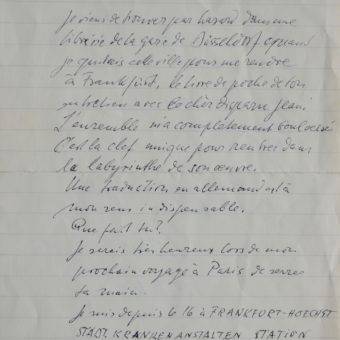 je viens de trouver par hasard dans une
librairie de la gare de Düsseldorf quand
je quittais cette ville pour me rendre
à Frankfurt, le livre de poche de ton
entretien avec le cher disparu Jean
L'ensemble m'a complètement bouleversé
C'est la clef unique pour rentrer dans
le labyrinthe de son œuvre.
Une traduction en allemand est à
mon sens indispensable.
Que fait tu?
Je serais très heureux lors de mon
prochain voyage à Paris de serrer
ta main.
Je suis depuis le 16 à FRANKFORT-HOECHST
STÄDT. KRANKENANSTALTEN STATION